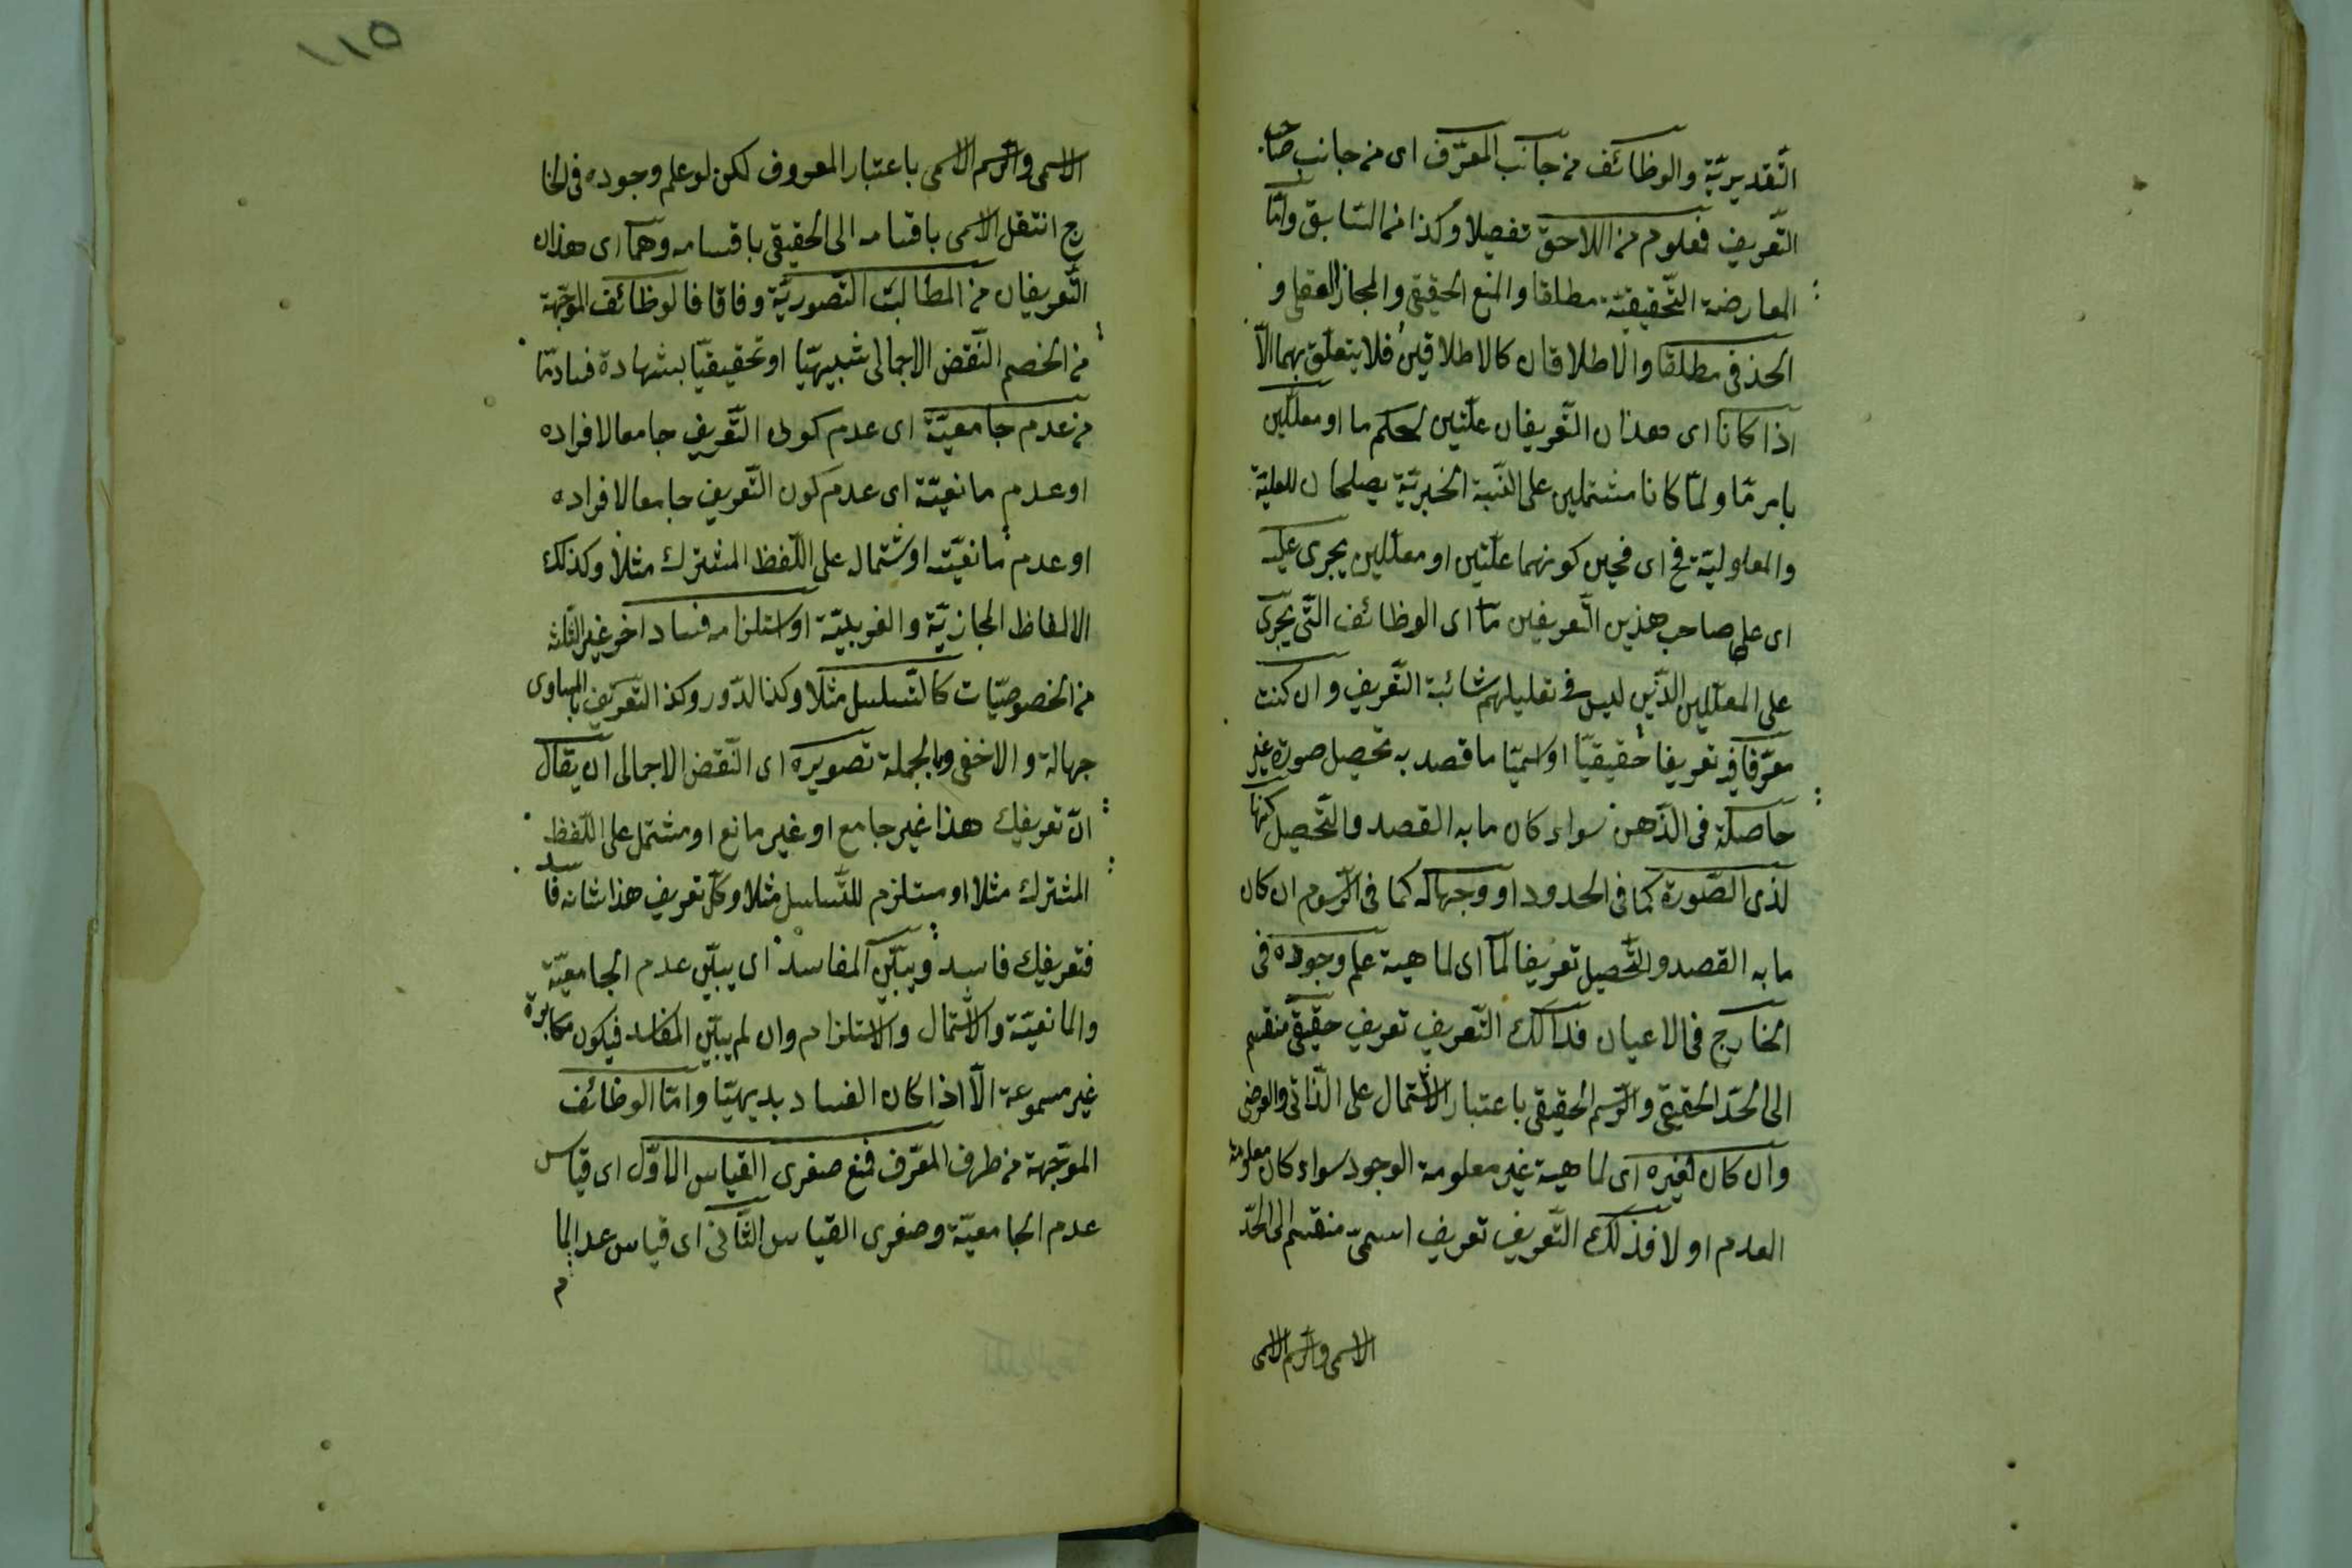 التّقديريّة والوظائف من جانب المعرّف اى من جانب صاحب
التّعريف فعلوم من اللاحق تفصيلا وكذا من السّابق وامّا
المعارضة التّحقيقيّة مطلقا والمنع الحقيقى والمجاز العقلى و
الحذفى مطلقا والاطلاقان كالاطلاقين فلا يتعلّق بهما الّا
اذا كانا اى هذان التّعريفان علّتين لحكم ما او معلّلين
بامر مّا ولمّا كانا مشتملين على النّسبة الخبريّة يصلحان للعليّة
والمعلوليّة فح اى فحين كونهما علّتين او معلّلين يجرى عليه
اى على صاحب هذين التّعريفين مّا اى الوظائف الّتى يجرى
على المعلّلين الذّين ليس فى تعليلهم شائبة التّعريف وان كنت
معرّفا فى تعريفا حقيقيّا او اسميّا ما قصد به تحصيل صورة غير
حاصلة فى الذّهن سواء كان ما به القصد والتّحصيل كنها
لذى الصّورة كما فى الحدود او وجها له كما فى الرّسوم ان كان
ما به القصد والتّحصيل تعريفا لما اى لماهية علم وجوده فى
الخارج فى الاعيان فذالك التّعريف تعريف حقيقىّ منقسم
الى الحدّ الحقيقى والرّسم الحقيقى باعتبار الاشتمال على الذّاتى والعرضى
وان كان لغيره اى لماهية غير معلومة الوجود سواء كان معلومة
العدم او لا فذلك التّعريف تعريف اسمىّ منقسم الى الحدّ
الاسمى والرّسم الاسمى
١١٥
الاسمى والرّسم الاسمى باعتبار المعروف لكن لو علم وجوده فى الخا
رج انتقل الاسمى باقسامه الى الحقيقى باقسامه وهما اى هذان
التّعريفان من المطالب التّصوريّة وفاقا فالوظائف الموجّهة
من الخصم النّقض الاجمالى شبيهيّا او تحقيقيّا بشهادة فساد مّا
من عدم جامعيّة اى عدم كون التّعريف جامعا لافراده
او عدم مانعيّة اى عدم كون التّعريف جامعا لافراده
او عدم مانعيّته او شتمال على اللّفظ المشترك مثلا وكذلك
الالفاظ المجازيّة والغريبيّة او استلزامه فساد اخر غير الثلثه
من الخصوصيّات كالتّسلسل مثلا وكذا لدّور وكذا التّعريف بالمساوى
جهالة والاخفى وبالجملة تصويره اى النّقض الاجمالى ان يقال
انّ تعريفك هذا غير جامع او غير مانع او مشتمل على اللّفظ
المشترك مثلا او مستلزم للتّسلسل مثلا وكلّ تعريف هذا شانه فاسد
فتعريفك فاسد ويبيّن المفاسد اى يبيّن عدم الجامعيّة
والمانعيّة والاشتمال والاستلزام وان لم يبيّن المفاسد فيكون مكابرة
غير مسموعة الّا اذا كان الفساد بديهيّا وامّا الوظائف
الموجّهة من طرف المعرّف فمنع صغرى القياس الاوّل اى قياس
عدم الجامعيّة وصغرى القياس الثّانى اى قياس عدم الما